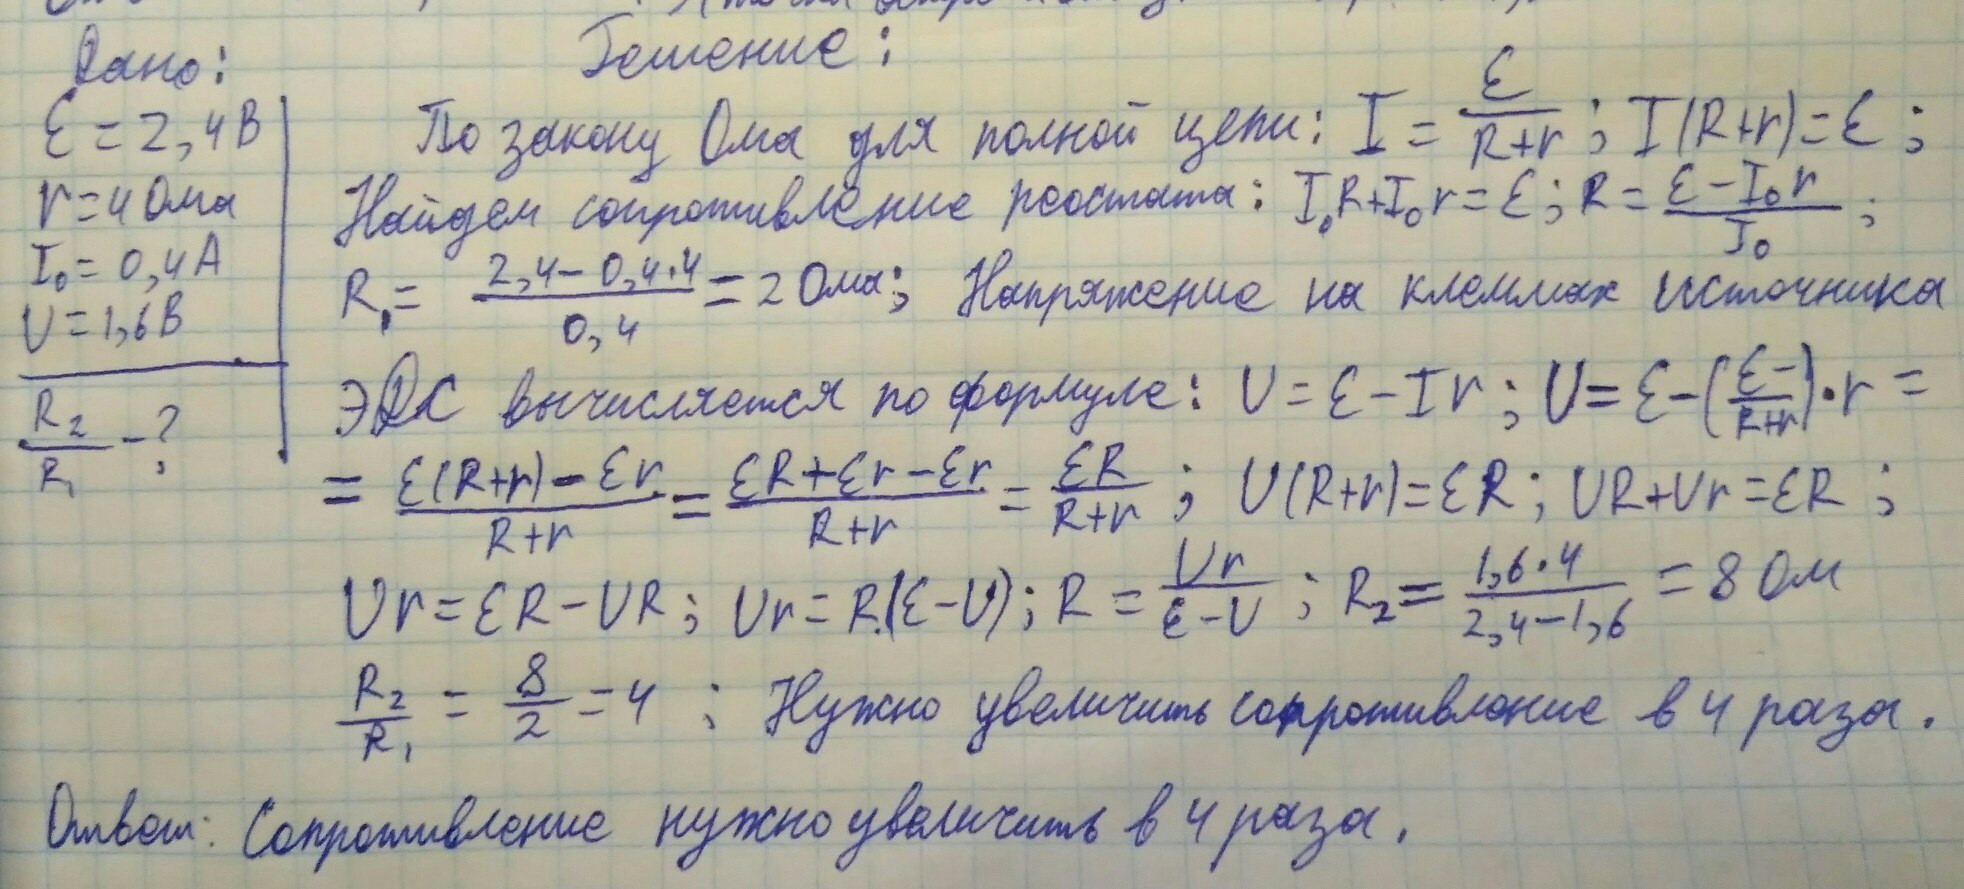 Дано:
Решение:
Ɛ = 2,4 В
r = 4 Ома
I₀ = 0,4 А
U = 1,6 В
R₂/R₁ - ?
По закону Ома для полной цепи: I = Ɛ/(R+r); I(R+r) = Ɛ;
Найдем сопротивление реостата: I₀R+I₀r = Ɛ; R = (Ɛ-I₀r)/I₀;
R₁ = (2,4-0,4·4)/0,4 = 2 Ома; Напряжение на клеммах источника
ЭДС вычисляется по формуле: U = Ɛ - Ir; U = Ɛ-(Ɛ-/(R+r))·r =
= (Ɛ(R+r)-Ɛr)/(R+r) = (ƐR+Ɛr-Ɛr)/(R+r) = ƐR/(R+r); U(R+r)=ƐR; UR+Ur=ƐR;
Ur = ƐR-UR; Ur = R(Ɛ-U); R = Ur/(Ɛ-U); R₂ = (1,6·4)/(2,4-1,6) = 8 Ом
R₂/R₁ = 8/2 = 4; Нужно увеличить сопротивление в 4 раза.
Ответ: Сопротивление нужно увеличить в 4 раза.